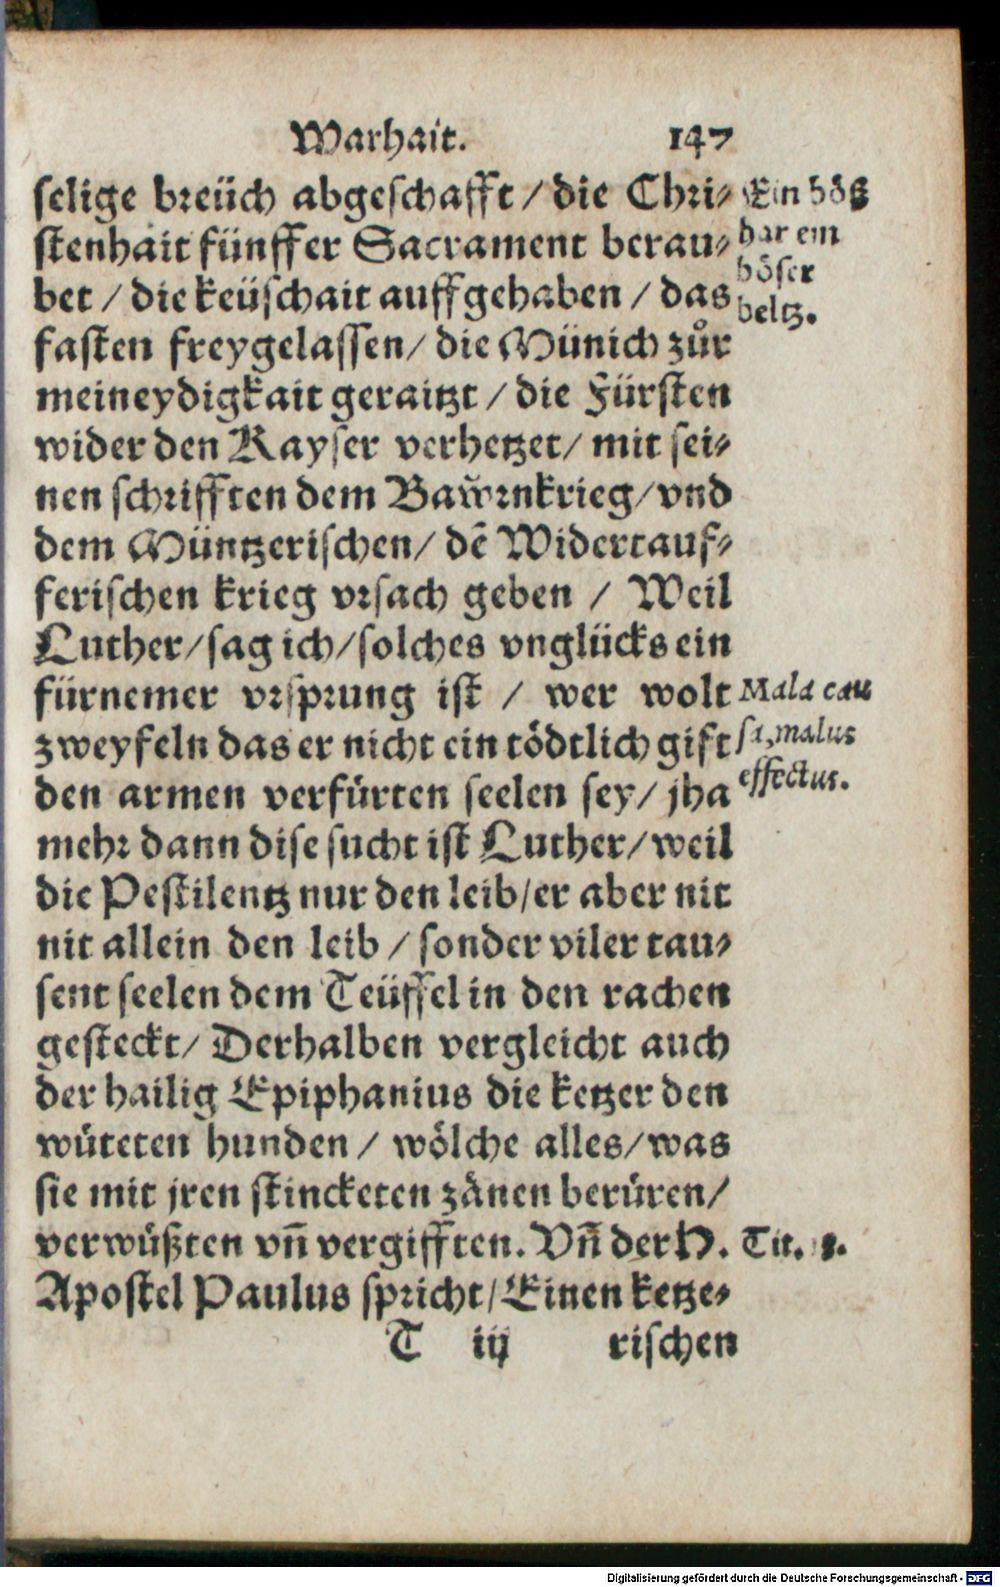 Warhait. 147
selige breüch abgeschafft / die Chri⸗
stenhait fünffer Sacrament berau⸗
bet / die keüschait auffgehaben / das
fasten freygelassen / die Münich zůr
meineydigkait geraitzt / die Fürsten
wider den Kayser verhetzet / mit sei⸗
nen schrifften dem Bawrnkrieg / vnd
dem Müntzerischen / dē Widertauf⸗
ferischen krieg vrsach geben / Weil
Luther / sag ich / solches vnglücks ein
fürnemer vrsprung ist / wer wolt
zweyfeln das er nicht ein tödtlich gift
den armen verfürten seelen sey / jha
mehr dann dise sucht ist Luther / weil
die Pestilentz nur den leib / er aber nit
nit allein den leib / sonder viler tau⸗
sent seelen dem Teüffel in den rachen
gesteckt / Derhalben vergleicht auch
der hailig Epiphanius die ketzer den
wüteten hunden / wölche alles / was
sie mit jren stincketen zänen berüren /
verwüßten vñ vergifften. Vñ der H.
Apostel Paulus spricht / Einen ketze⸗
T iij rischen
Ein böß
har ein
böser
beltz.
Mala cau
sa, malus
effectus.
Tit. 3.